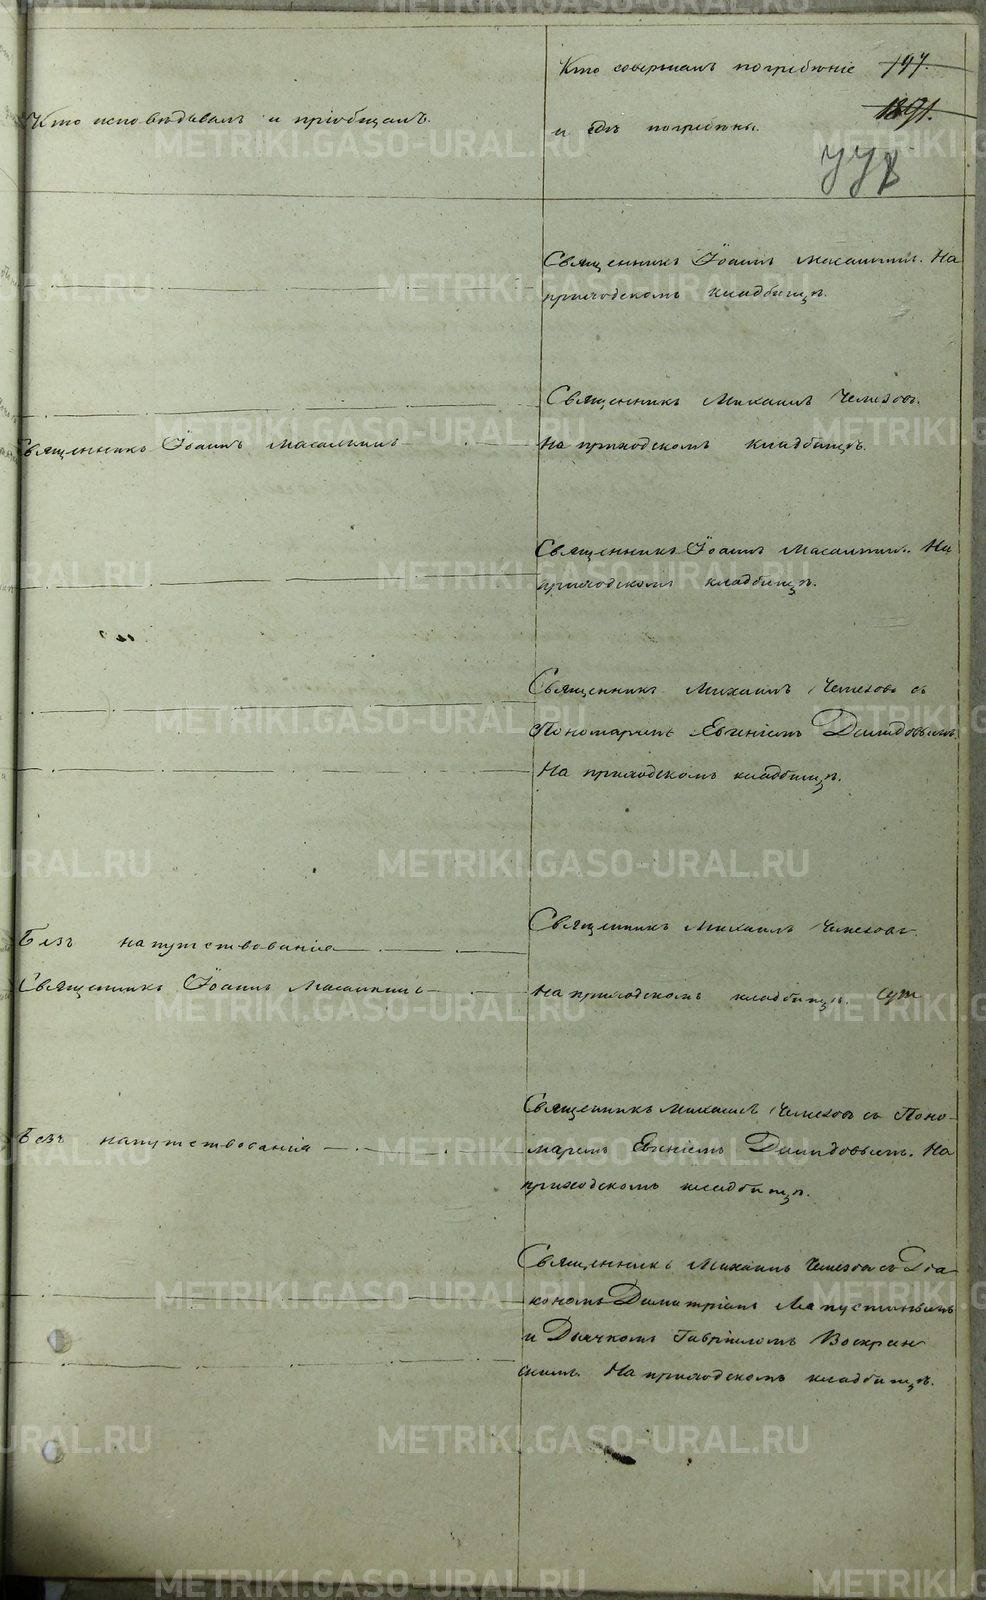 Кто исповѣдывалъ и пріобщалъ.
Кто совершалъ погребеніе 197.
и гдѣ погребены. 1891.
Священникъ Іоаннъ Масалкинъ. На
приходскомъ кладбищѣ.
Священникъ Михаилъ Чемезовъ.
Священникъ Іоаннъ Масалкинъ
На приходскомъ кладбищѣ.
Священникъ Іоаннъ Масалкинъ. На
приходскомъ кладбищѣ.
Священникъ Михаилъ Чемезовъ съ
Пономаремъ Евгеніемъ Демидовымъ.
На приходскомъ кладбищѣ.
Священникъ Михаилъ Чемезовъ.
Безъ напутствованія
Священникъ Іоаннъ Масалкинъ
На приходскомъ кладбищѣ.
Священникъ Михаилъ Чемезовъ съ Поно-
Безъ напутствованія
маремъ Евгеніемъ Демидовымъ. На
приходскомъ кладбищѣ.
Священникъ Михаилъ Чемезовъ съ Діа-
кономъ Димитріемъ
и Дьячкомъ Гавріиломъ Воскресен
скимъ. На приходскомъ кладбищѣ.
METRIKI.GASO-URAL.RU